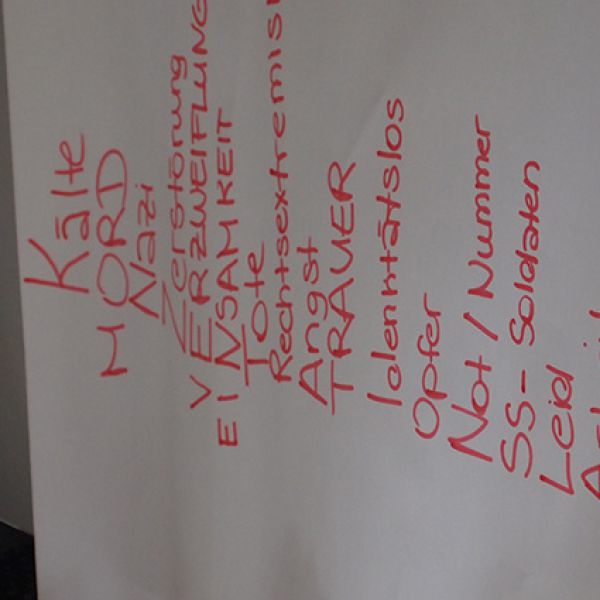 Kälte
MORD
Nazi
Zerstörung
VERZWEIFLUNG
EINSAMKEIT
Tote
Rechtsextremis
Angst
TRAUER
Identitätslos
Opfer
Not / Nummer
SS-Soldaten
Leid